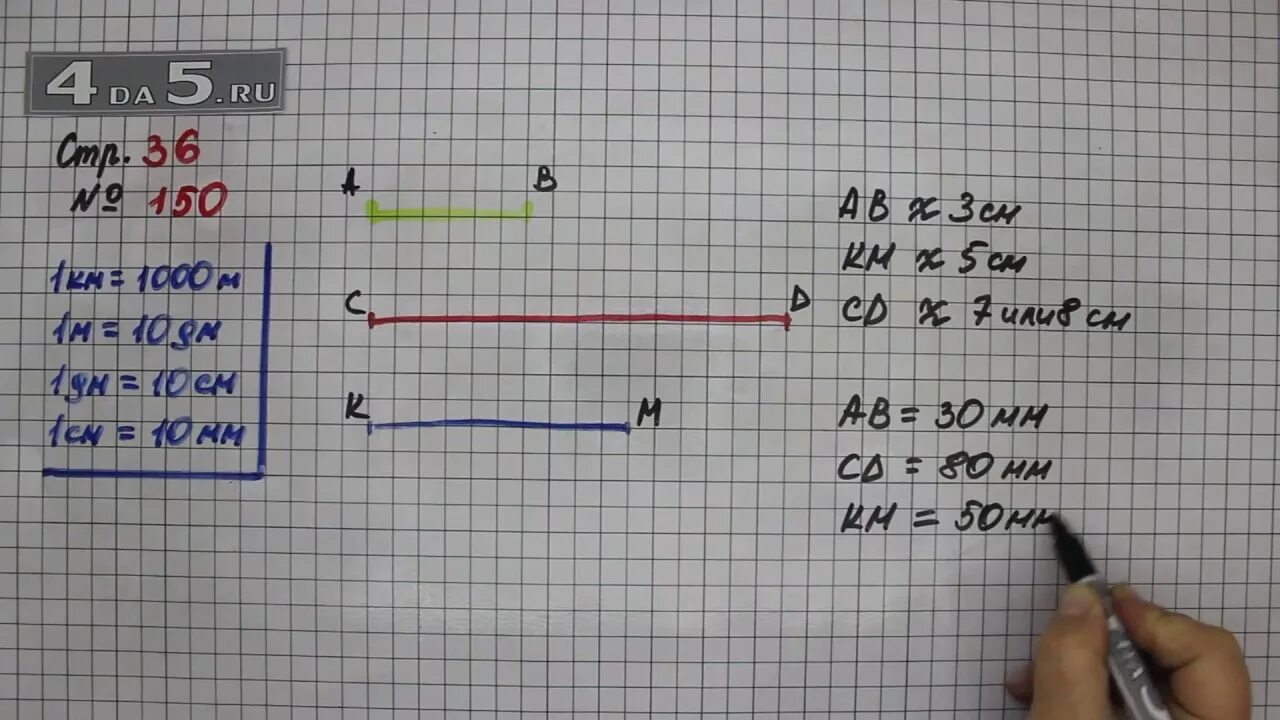 4 DA 5.RU
Стр. 36
№ 150
1км = 1000 м
1м = 10 дм
1дм = 10 см
1см = 10 мм
A B
C D
K M
AB ≈ 3 см
KM ≈ 5 см
CD ≈ 7 или 8 см
AB = 30 мм
CD = 80 мм
KM = 50 мм